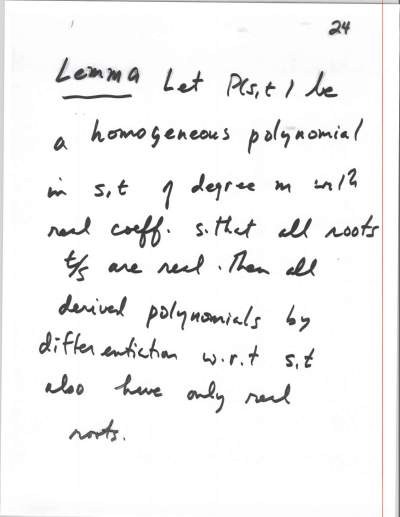 24
Lemma Let P(s,t) be
a homogeneous polynomial
in s,t of degree m with
real coeff. s.that all roots
t/s are real. Then all
derived polynomials by
differentiation w.r.t s,t
also have only real
roots.